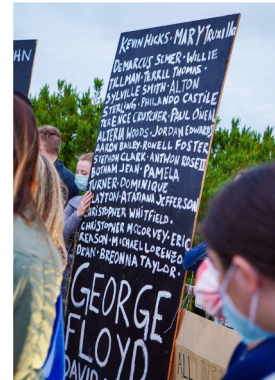 HN
KEVIN HICKS. MARY TRUXILLO
DEMARCUS SEMER. WILLIE
TILLMAN. TERRILL THOMAS.
SYLVILLE SMITH. ALTON
STERLING. PHILANDO CASTILE
TERENCE CRUTCHER. PAUL OWEN
ALTERIA WOODS. JORDAN EDWARDS
AARON BAILEY. RONELL FOSTER
STEPHON CLARK. ANTWON ROSE II
BOTHAM JEAN. PAMELA
TURNER. DOMINIQUE
CLAYTON. ATATIANA JEFFERSON
CHRISTOPHER WHITFIELD.
CHRISTOPHER MCCORVEY. ERIC
REASON. MICHAEL LORENZO
DEAN. BREONNA TAYLOR.
GEORGE
FLOYD
DAVID
ALL